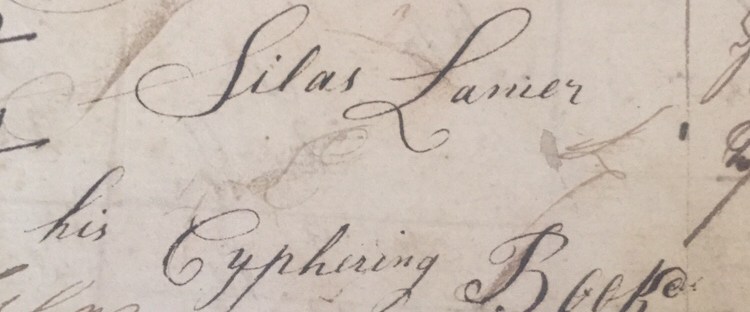 Silas Lanier
his Cyphering Book